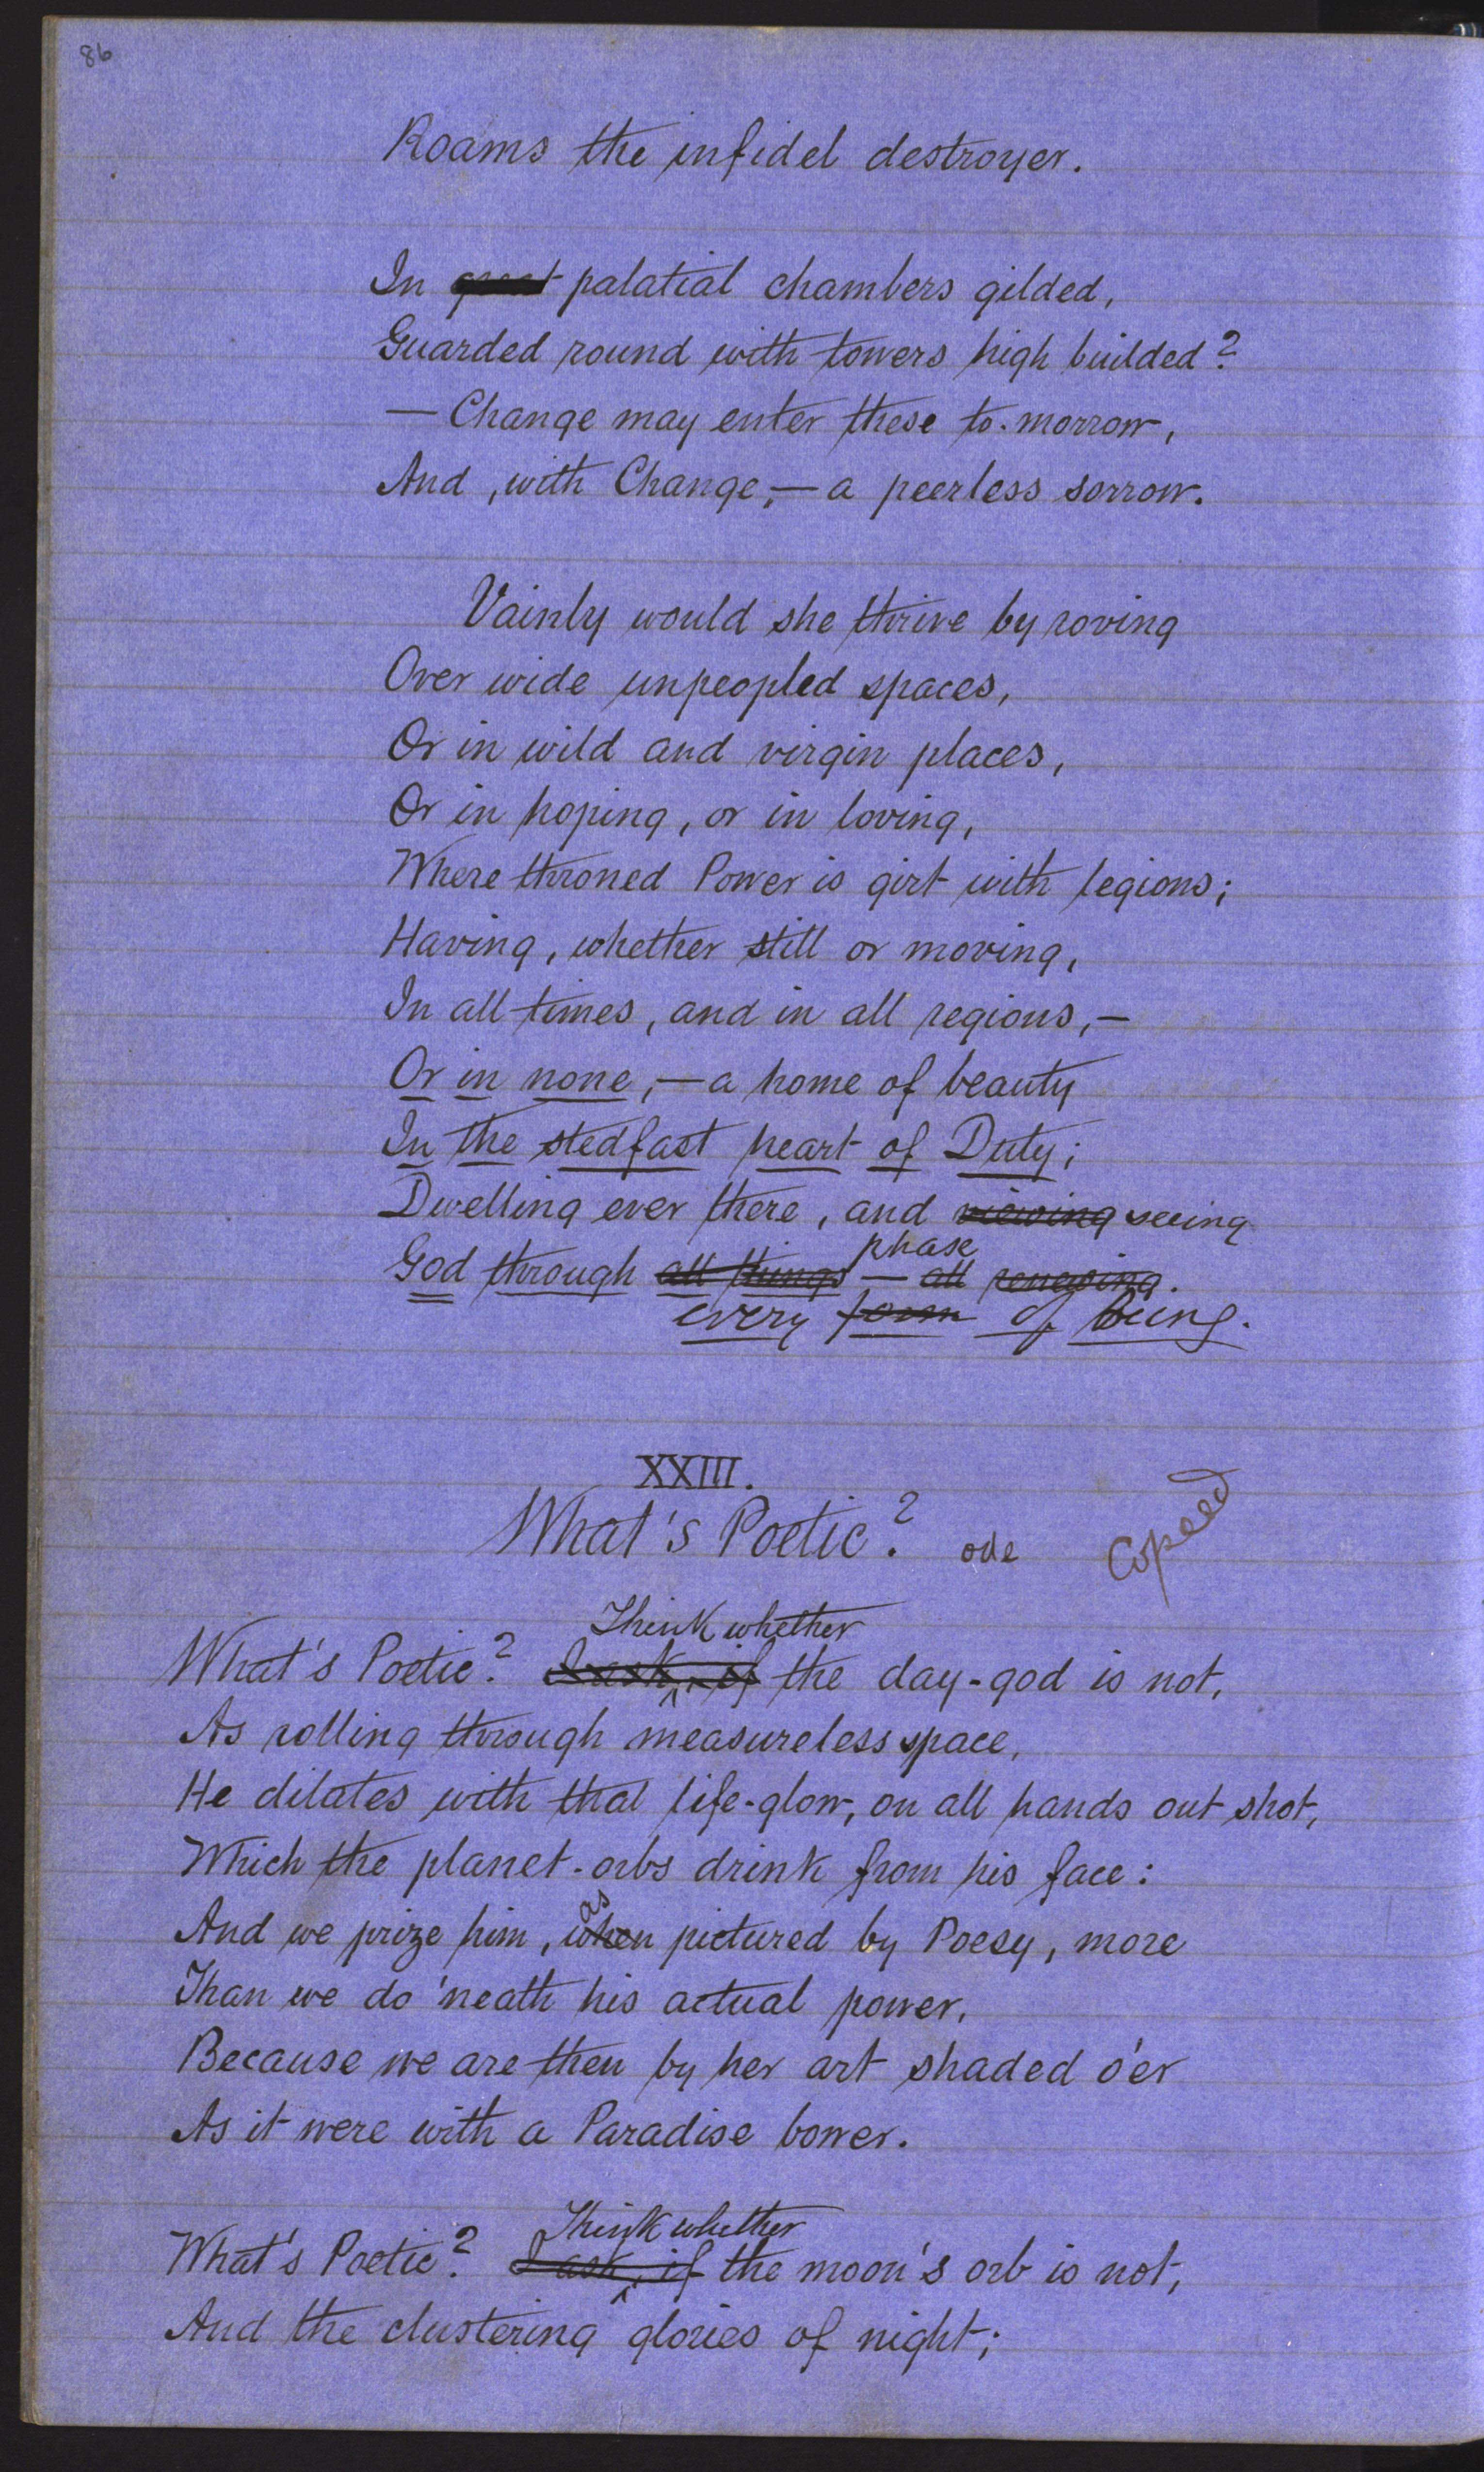 86
Roams the infidel destroyer.
In great palatial chambers gilded,
Guarded round with towers high builded?
— Change may enter these to-morrow,
And, with Change,— a peerless sorrow.
Vainly would she thrive by roving
Over wide unpeopled spaces,
Or in wild and virgin places,
Or in hoping, or in loving,
Where throned Power is girt with legions;
Having, whether still or moving,
In all times, and in all regions,—
Or in none,— a home of beauty
In the stedfast heart of Duty;
Dwelling ever there, and viewing seeing
phase
God through all things — all renewing.
every form of Being.
XXIII.
What's Poetic? ode Copeed
Think whether
What's Poetic? I ask, if the day-god is not,
As rolling through measureless space,
He dilates with that life-glow, on all hands out shot,
Which the planet-orbs drink from his face:
as
And we prize him, when pictured by Poesy, more
Than we do 'neath his actual power,
Because we are then by her art shaded o'er
As it were with a Paradise bower.
Think whether
What's Poetic? I ask, if the moon's orb is not,
And the clustering glories of night;